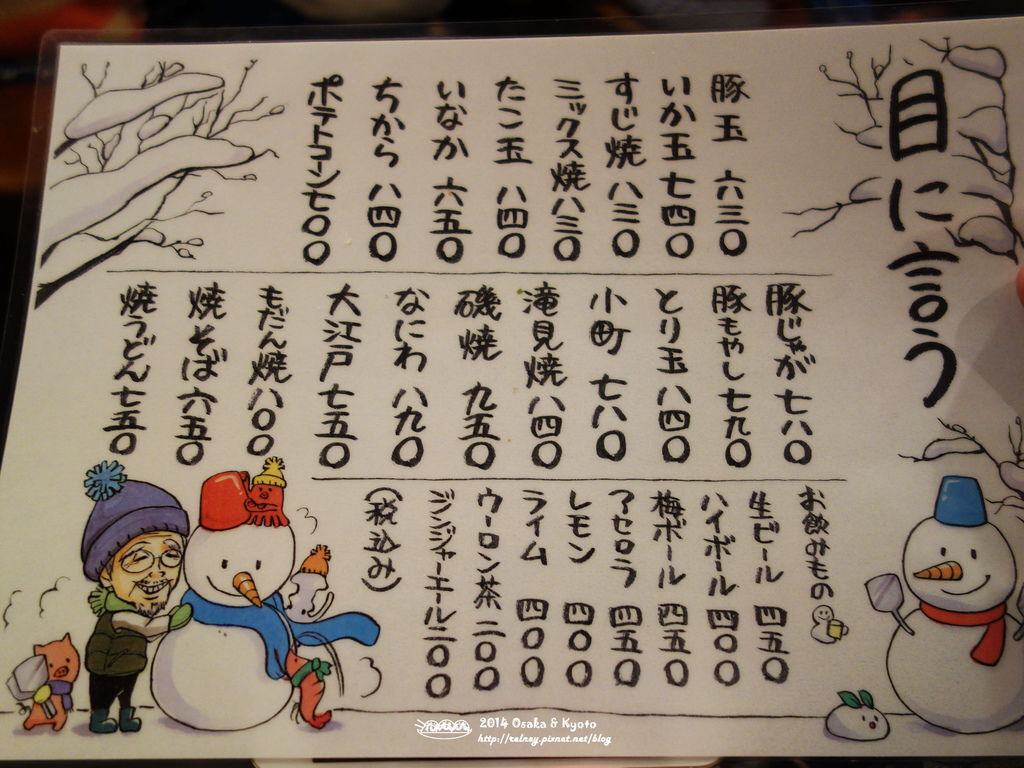 目に言う
豚玉 六三〇
いか玉 七四〇
すじ焼 八三〇
ミックス焼 八三〇
たこ玉 八四〇
いなか 六五〇
ちから 八四〇
ポテトコーン 七〇〇
豚じゃが 七八〇
豚もやし 七九〇
とり玉 八四〇
小町 七八〇
滝見焼 八四〇
磯焼 九五〇
なにわ 八九〇
大江戸 七五〇
もだん焼 八〇〇
焼そば 六五〇
焼うどん 七五〇
お飲みもの
生ビール 四五〇
ハイボール 四〇〇
梅ボール 四五〇
アセロラ 四五〇
レモン 四〇〇
ライム 四〇〇
ウーロン茶 二〇〇
ジンジャーエール 二〇〇
(税込み)
2014 Osaka & Kyoto
http://relney.pixnet.net/blog